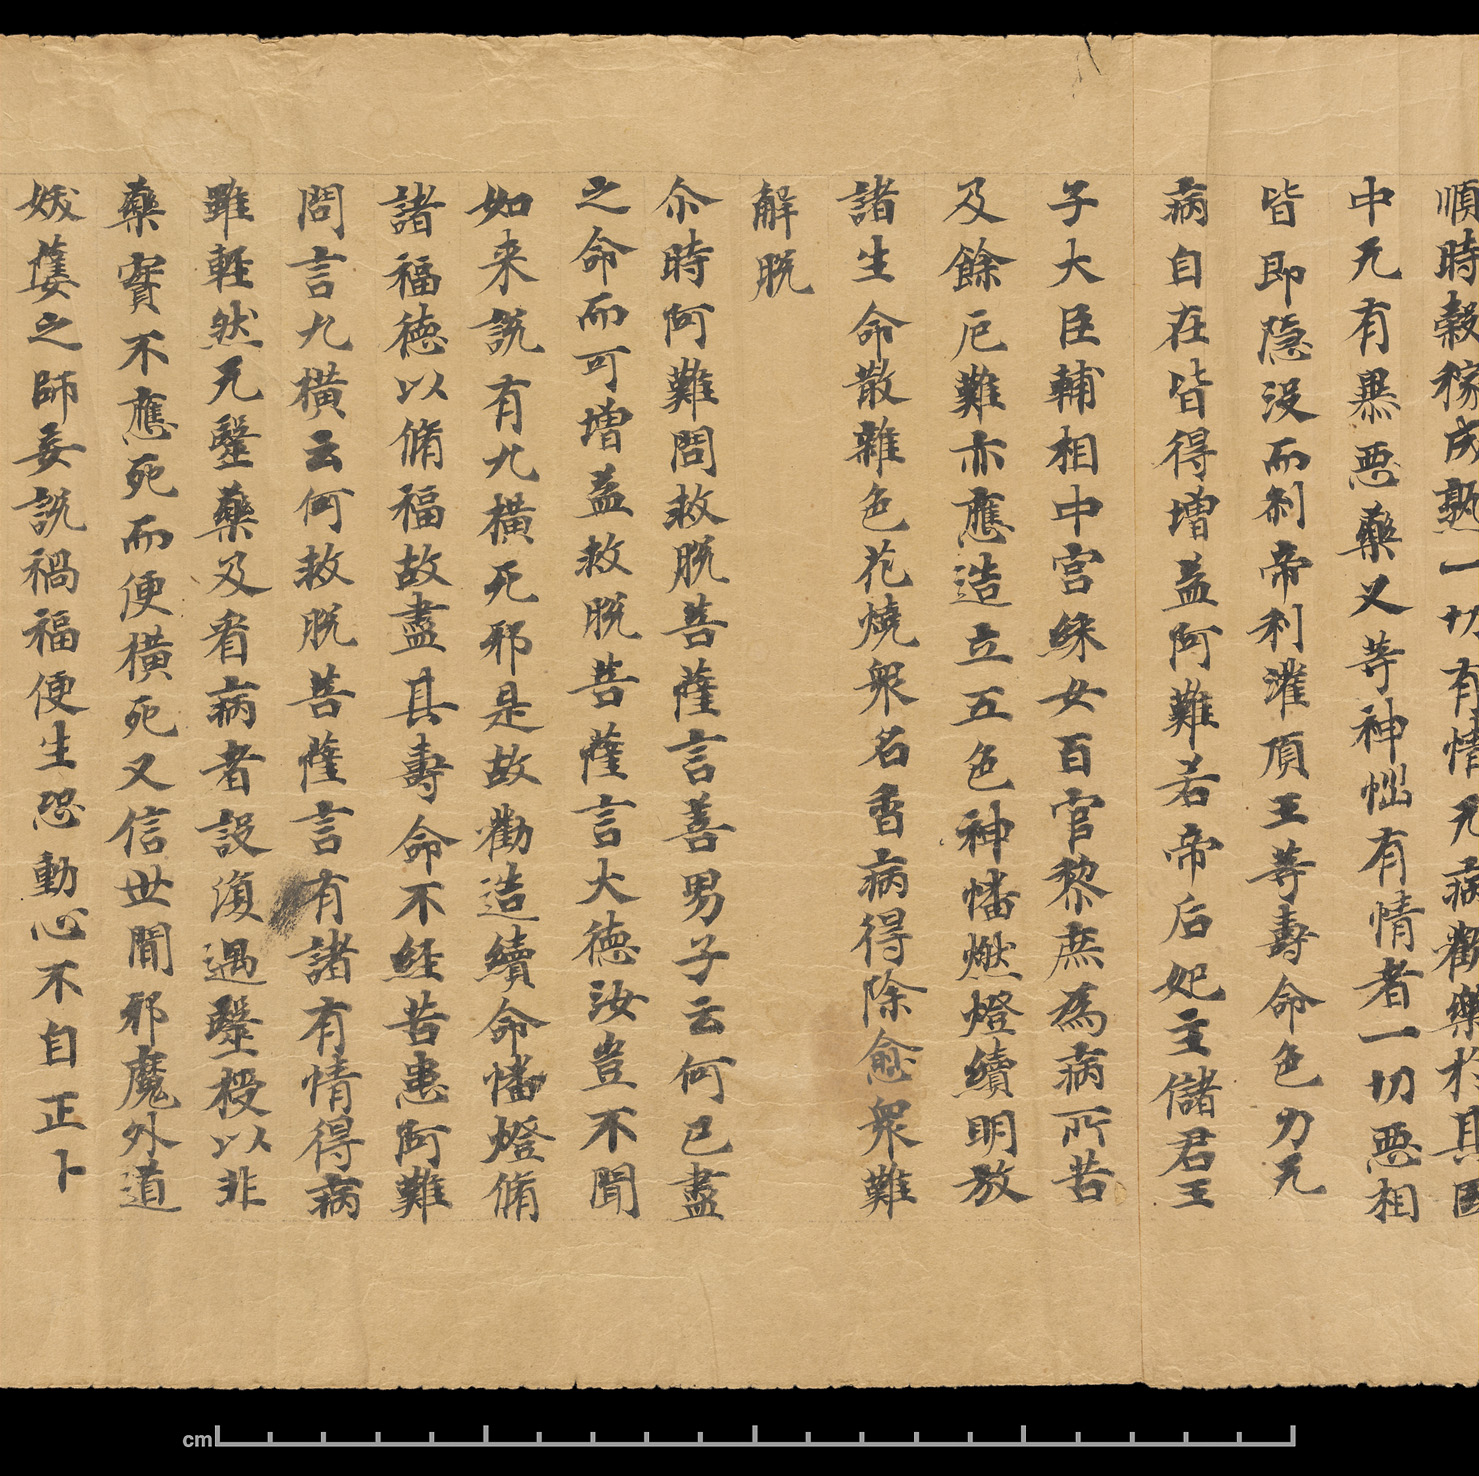 順時穀稼成熟一切有情无病歡樂於其國
中无有暴惡藥叉等神惱有情者一切惡相
皆即隱沒而刹帝利灌頂王等壽命色力无
病自在皆得增益阿難若帝后妃主儲君王
子大臣輔相中宮婇女百官黎庶為病所苦
及餘厄難亦應造立五色神幡燃燈續明放
諸生命散雜色花燒衆名香病得除愈衆難
解脫
尒時阿難問救脫菩薩言善男子云何已盡
之命而可增益救脫菩薩言大德汝豈不聞
如来說有九橫死邪是故勸造續命幡燈脩
諸福德以脩福故盡其壽命不經苦患阿難
問言九橫云何救脫菩薩言有諸有情得病
雖輕然无毉藥及看病者設復遇毉授以非
藥實不應死而便橫死又信世閒邪魔外道
妖㜸之師妄說禍福便生恐動心不自正卜